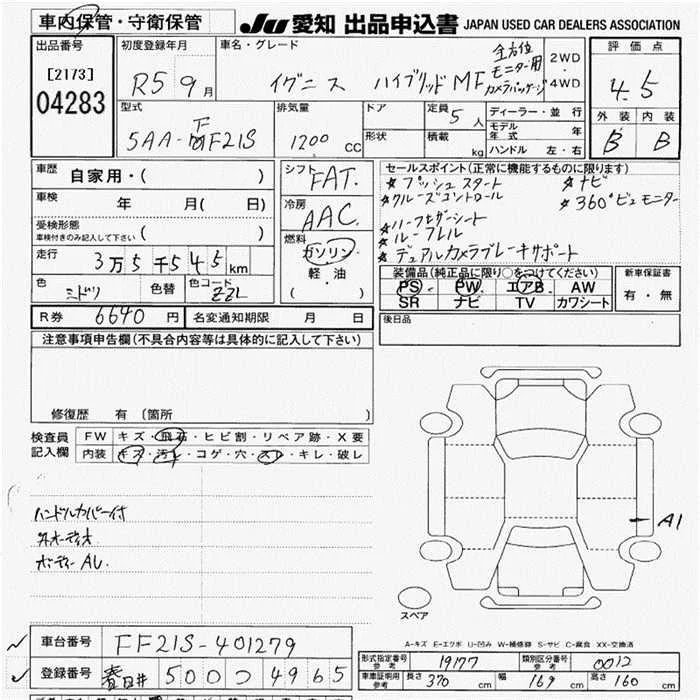 車内保管・守衛保管 JU 愛知 出品申込書 JAPAN USED CAR DEALERS ASSOCIATION
出品番号 [2173] 04283
初度登録年月 R5 9月
車名・グレード イグニス ハイブリッドMF 全方位モニター用カメラパッケージ
2WD・4WD
評価点 4.5
外装 B 内装 B
型式 5AA-FF21S
排気量 1200 cc
ドア 形状
定員 5人
積載 kg
ディーラー・並行
モデル年式 年
ハンドル 左・右
車歴 自家用・( )
車検 年 月( 日)
受検形態 車検付きのみ記入して下さい ( )
走行 3万5千545km
色 ミドリ 色替 色コード ZZL
シフト FAT.
冷房 AAC.
燃料 ガソリン・軽・油 ( )
セールスポイント(正常に機能するものに限ります)
☆プッシュスタート ☆ナビ
☆クルーズコントロール ☆360°ビュモニター
☆ハーフレザーシート
☆ルーフレル
☆デュアルカメラブレーキサポート
装備品(純正品に限り○をつけてください)
PS PW エアB AW
SR ナビ TV カワシート
新車保証書 有・無
R券 6640円 名変通知期限 月 日
後日品
注意事項申告欄(不具合内容等は具体的に記入して下さい)
修復歴 有 [箇所 ]
検査員記入欄 FW キズ・飛石・ヒビ割・リペア跡・X要
内装 キズ・汚レ・コゲ・穴・スレ・キレ・破レ
ハンドルカバー付
外オーディオ
ボディーAU.
A1
スペア
A-キズ E-エクボ U-凹み W-補修跡 S-サビ C-腐食 XX-交換済
車台番号 FF21S-401279
登録番号 春日井 500 つ 4965
形式指定番号 参考 19177 類別区分番号 参考 0012
車庫証明用 参考 長さ 370 cm 幅 169 cm 高さ 160 cm